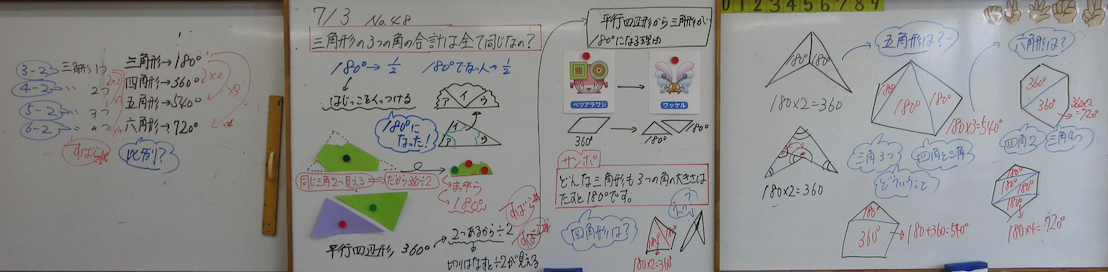 3-2 三角形1つ 三角形→180°
4-2 〃 2つ 四角形→360°
5-2 〃 3つ 五角形→540°
6-2 〃 4つ 六角形→720°
比例!?
7/3 No.48
三角形の3つの角の合計は全て同じなの?
180°→1/2 180°でない人→1/2
はじっこをくっつける
ア イ ウ
180°になった!
ア イ ウ
同じ三角2つ見える だから360÷2
まっすぐ
180°
平行四辺形 360° 2つあるから÷2
切りはなすと÷2が見える
平行四辺形から三角形が
180°になる理由
ベツアラワシ
ワッケル
360° 180°
サンポ
どんな三角形も3つの角の大きさは
たすと180°です。
四角形は?
180° 180°
180×2=360
0 1 2 3 4 5 6 7 8 9
180° 180°
180×2=360
180×2=360
五角形は?
180° 180° 180°
180×3=540°
三角3つ
四角と三角
どういうこと
180°
360°
180+360=540°
六角形は?
360°
360°
360×2
=720°
四角2
三角4つ
180° 180° 180° 180°
180×4=720°